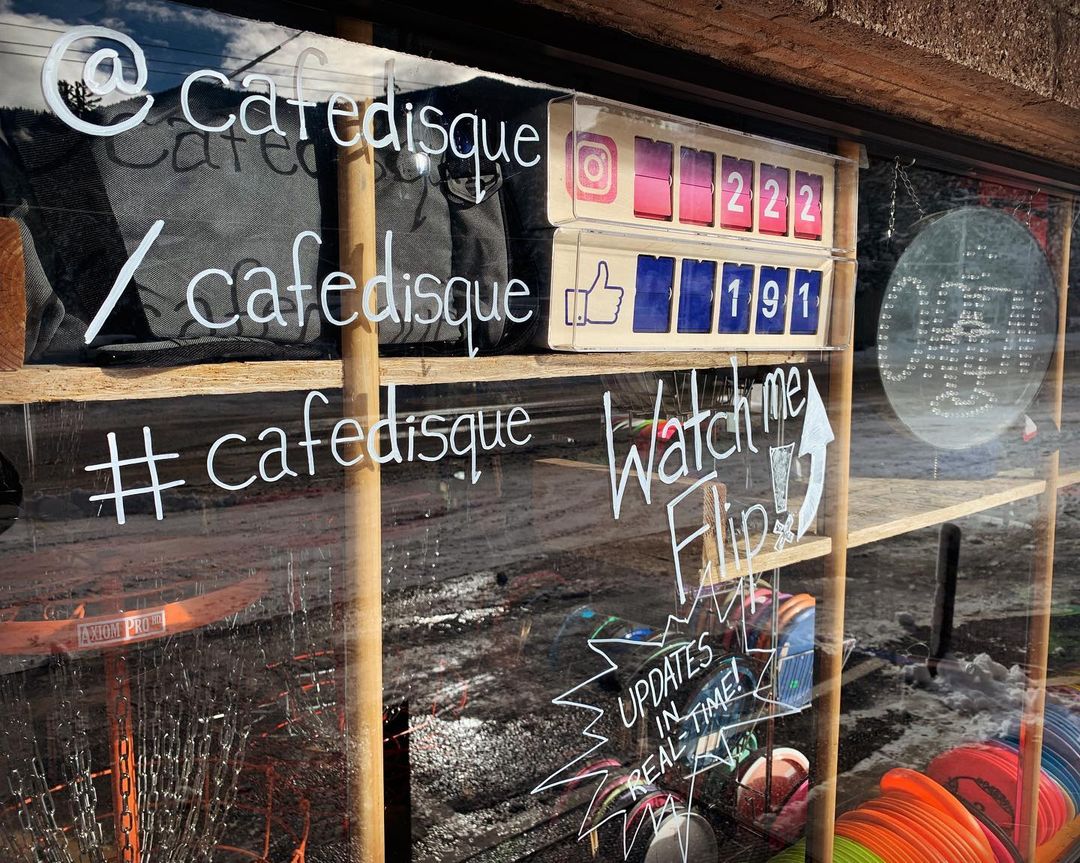 @cafedisque
222
/cafedisque
191
#cafedisque
Watch me
Flip!
UPDATES
IN
REAL-TIME!
AXIOM PRO HD